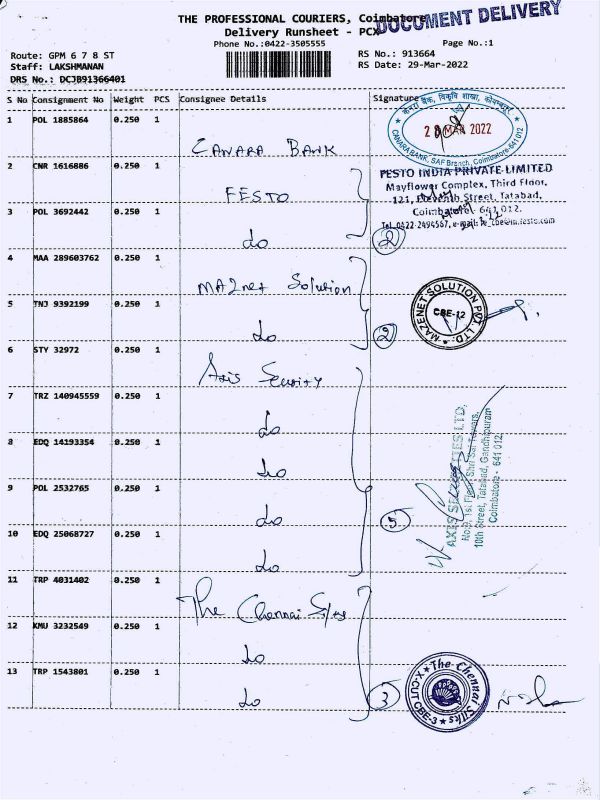 THE PROFESSIONAL COURIERS, Coimbatore
DOCUMENT DELIVERY
Delivery Runsheet - PCX
Phone No.:0422-3505555
Page No.:1
Route: GPM 6 7 8 ST
RS No.: 913664
Staff: LAKSHMANAN
RS Date: 29-Mar-2022
DRS No.: DCJB91366401
S No Consignment No Weight PCS Consignee Details Signature
1 POL 1885864 0.250 1
CANARA BANK
केनरा बैंक, विकृवि शाखा, कोयम्बत्तूर
CANARA BANK, SAF Branch, Coimbatore-641 012
MAR 2022
2 CNR 1616886 0.250 1
FESTO
FESTO INDIA PRIVATE LIMITED
Mayflower Complex, Third Floor,
121, Street, Tatabad,
Coimbatore 641 012.
Tel.0422 2494567, e-mail:
3 POL 3692442 0.250 1
do
2
4 MAA 289603762 0.250 1
MAZnet Solution
MAZENET SOLUTION PVT. LTD.
CBE-12
5 TNJ 9392199 0.250 1
do
2
6 STY 32972 0.250 1
Axis Security
7 TRZ 140945559 0.250 1
do
8 EDQ 14193354 0.250 1
do
AXIS SECURITIES LTD,
1st Floor, Shri Sai Towers,
10th Street, Tatabad, Gandhipuram
Coimbatore - 641 012.
9 POL 2532765 0.250 1
do
5
10 EDQ 25068727 0.250 1
do
11 TRP 4031402 0.250 1
The Chennai Silks
12 KMU 3232549 0.250 1
do
13 TRP 1543801 0.250 1
do
3
The Chennai Silks
X-CUT CBE-3